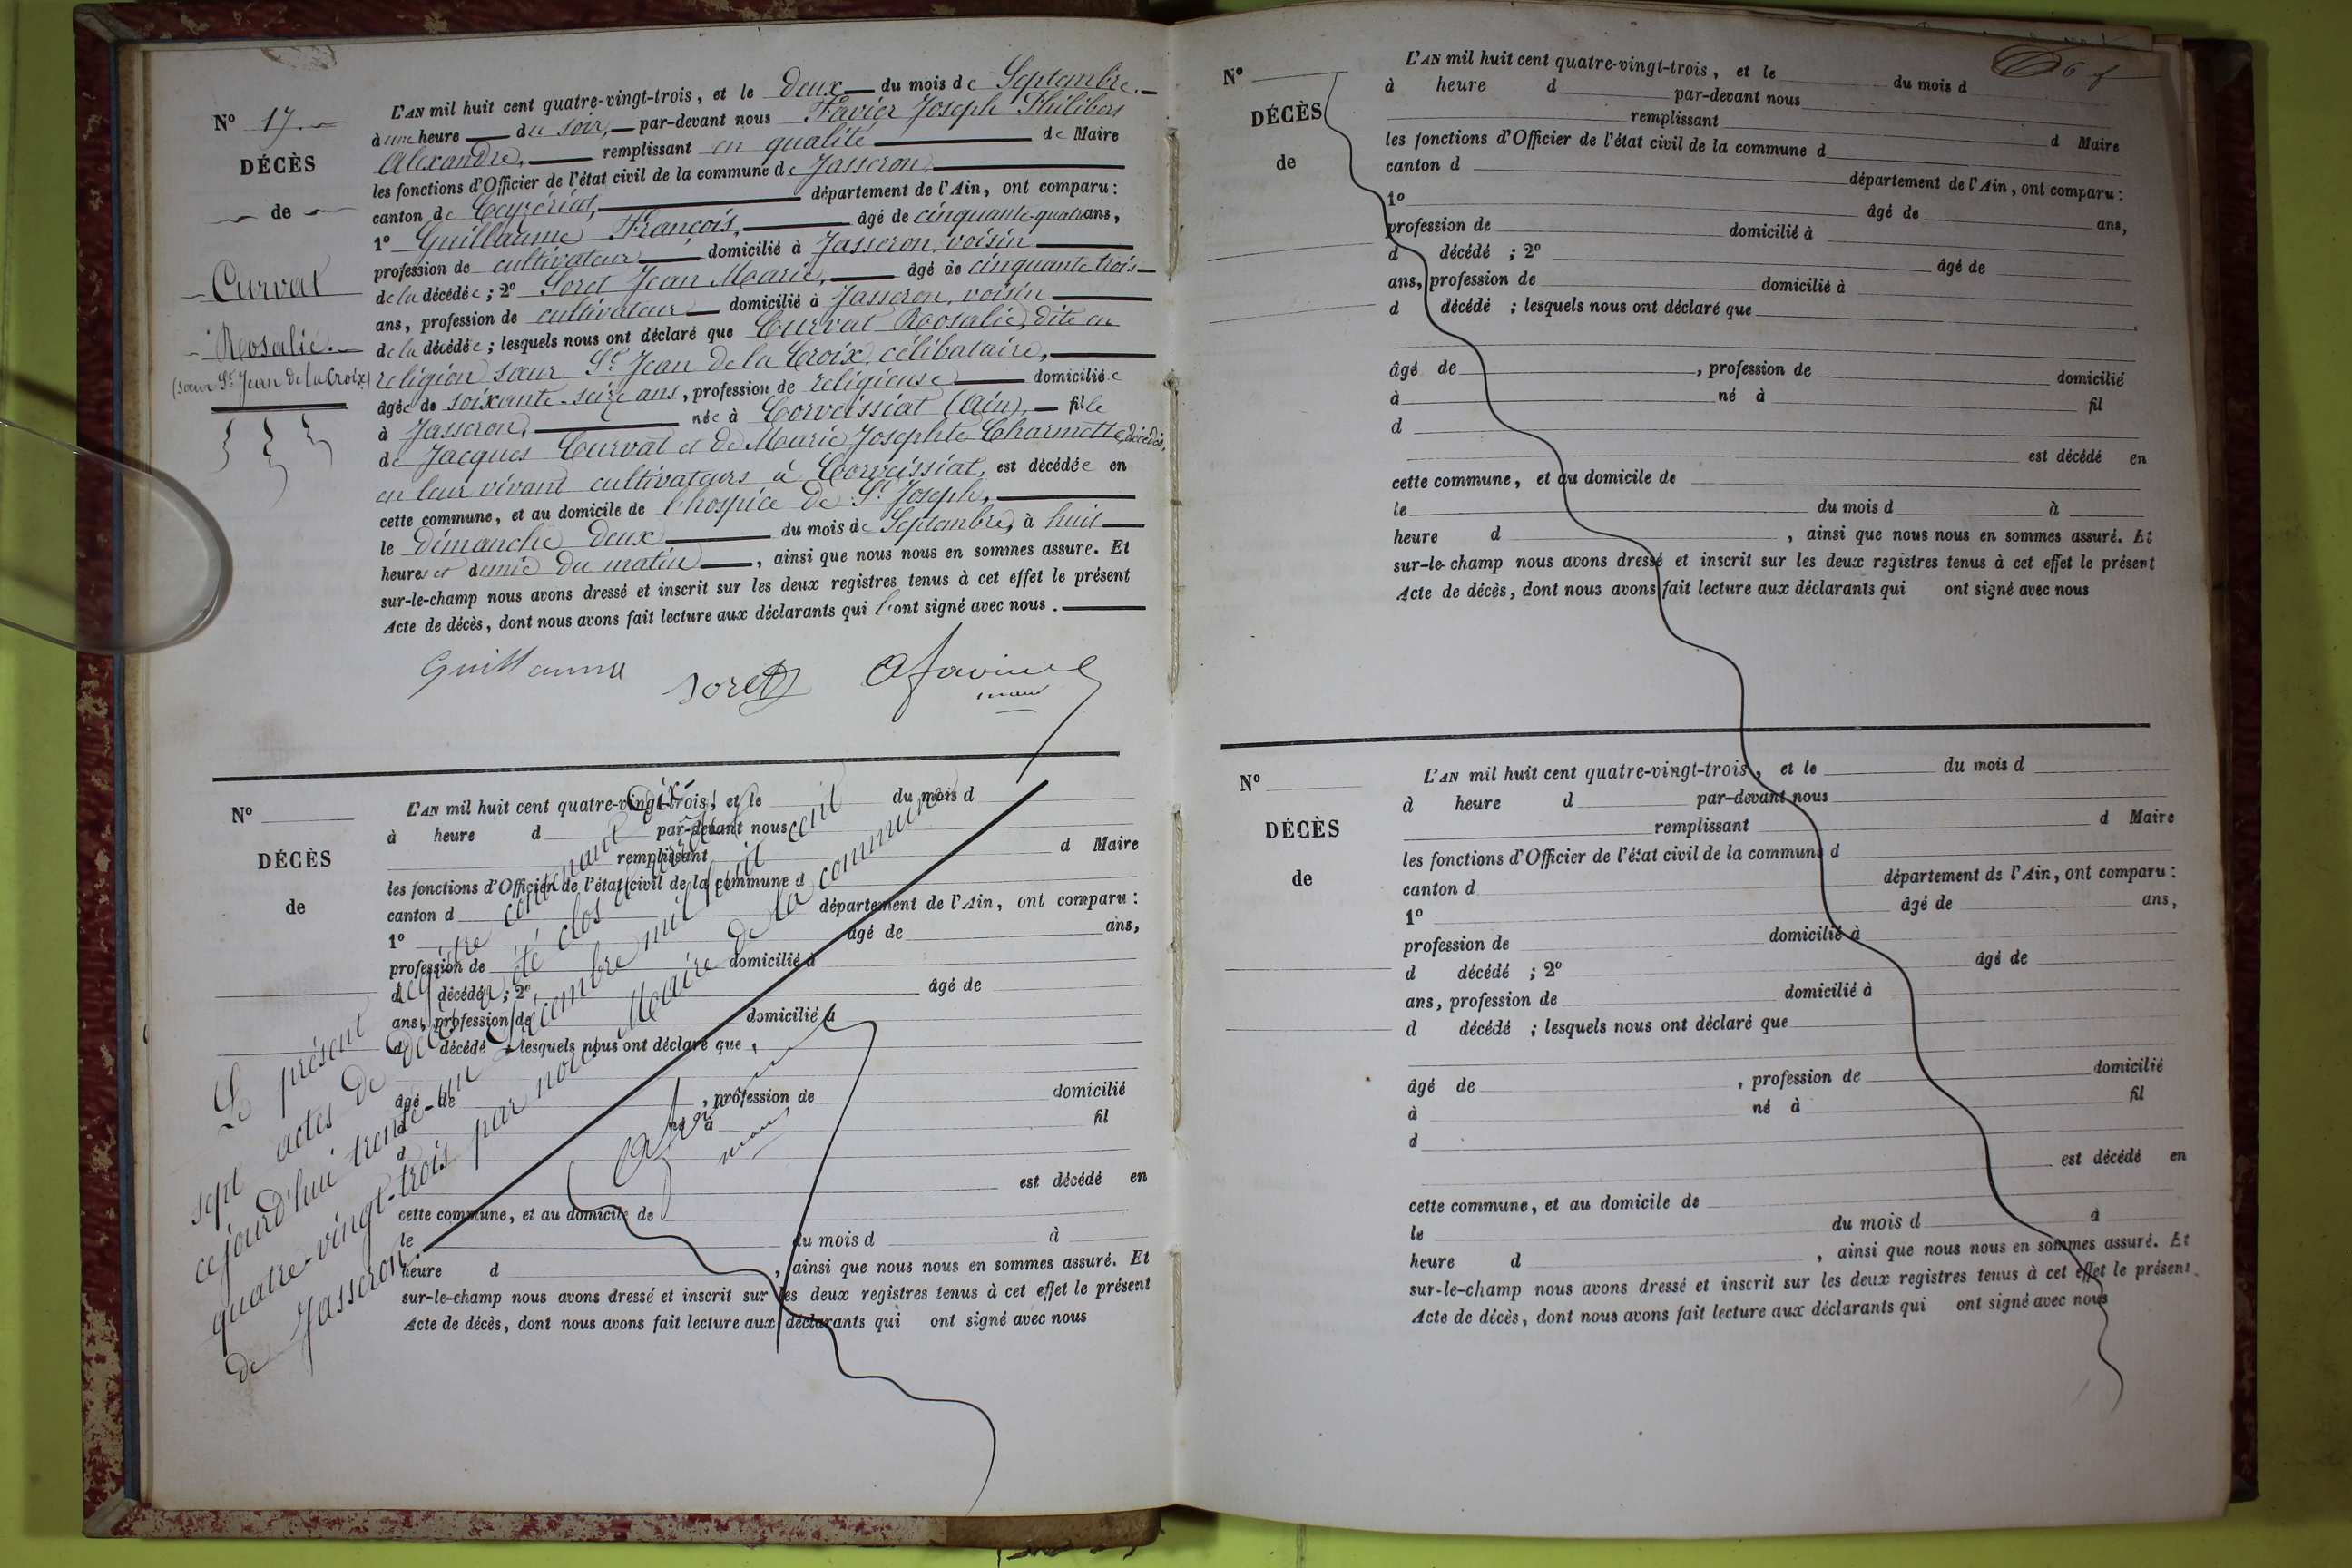 N° 17.
DÉCÈS
de
Curvat
Rosalie.
(sœur St Jean de la Croix)
L'AN mil huit cent quatre-vingt-trois, et le deux du mois de Septembre.
à une heure du soir, par-devant nous Favier Joseph Philibert
Alexandre, remplissant en qualité de Maire
les fonctions d'Officier de l'état civil de la commune de Jasseron,
canton de Ceyzériat, département de l'Ain, ont comparu :
1° Guillaume François, âgé de cinquante-quatre ans,
profession de cultivateur domicilié à Jasseron, voisin
de la décédée ; 2° Soret Jean Marie, âgé de cinquante-trois
ans, profession de cultivateur domicilié à Jasseron, voisin
de la décédée ; lesquels nous ont déclaré que Curvat Rosalie, dite en
religion sœur St Jean de la Croix, célibataire,
âgée de soixante-seize ans, profession de religieuse domiciliée
à Jasseron, née à Corveissiat (Ain), fille
de Jacques Curvat et de Marie Josephte Charmette, décédés,
en leur vivant cultivateurs à Corveissiat, est décédée en
cette commune, et au domicile de l'hospice de St Joseph,
le dimanche deux du mois de Septembre, à huit
heures et demie du matin, ainsi que nous nous en sommes assuré. Et
sur-le-champ nous avons dressé et inscrit sur les deux registres tenus à cet effet le présent
Acte de décès, dont nous avons fait lecture aux déclarants qui l'ont signé avec nous.
Guillaume Soret A favier
maire
N°
DÉCÈS
de
L'AN mil huit cent quatre-vingt-trois, et le du mois d
à heure d par-devant nous
remplissant d Maire
les fonctions d'Officier de l'état civil de la commune d
canton d département de l'Ain, ont comparu :
1° âgé de ans,
profession de domicilié à
d décédé ; 2° âgé de
ans, profession de domicilié à
d décédé ; lesquels nous ont déclaré que
âgé de , profession de domicilié
à né à fil
d
est décédé en
cette commune, et au domicile de
le du mois d à
heure d , ainsi que nous nous en sommes assuré. Et
sur-le-champ nous avons dressé et inscrit sur les deux registres tenus à cet effet le présent
Acte de décès, dont nous avons fait lecture aux déclarants qui ont signé avec nous
Le présent registre contenant dix
sept actes de décès a été clos et arrêté
cejourd'hui trente-un Décembre mil huit cent
quatre-vingt-trois par nous Maire de la commune
de Jasseron.
A favier
maire
N°
DÉCÈS
de
L'AN mil huit cent quatre-vingt-trois, et le du mois d
à heure d par-devant nous
remplissant d Maire
les fonctions d'Officier de l'état civil de la commune d
canton d département de l'Ain, ont comparu :
1° âgé de ans,
profession de domicilié à
d décédé ; 2° âgé de
ans, profession de domicilié à
d décédé ; lesquels nous ont déclaré que
âgé de , profession de domicilié
à né à fil
d
est décédé en
cette commune, et au domicile de
le du mois d à
heure d , ainsi que nous nous en sommes assuré. Et
sur-le-champ nous avons dressé et inscrit sur les deux registres tenus à cet effet le présent
Acte de décès, dont nous avons fait lecture aux déclarants qui ont signé avec nous
N°
DÉCÈS
de
L'AN mil huit cent quatre-vingt-trois, et le du mois d
à heure d par-devant nous
remplissant d Maire
les fonctions d'Officier de l'état civil de la commune d
canton d département de l'Ain, ont comparu :
1° âgé de ans,
profession de domicilié à
d décédé ; 2° âgé de
ans, profession de domicilié à
d décédé ; lesquels nous ont déclaré que
âgé de , profession de domicilié
à né à fil
d
est décédé en
cette commune, et au domicile de
le du mois d à
heure d , ainsi que nous nous en sommes assuré. Et
sur-le-champ nous avons dressé et inscrit sur les deux registres tenus à cet effet le présent
Acte de décès, dont nous avons fait lecture aux déclarants qui ont signé avec nous